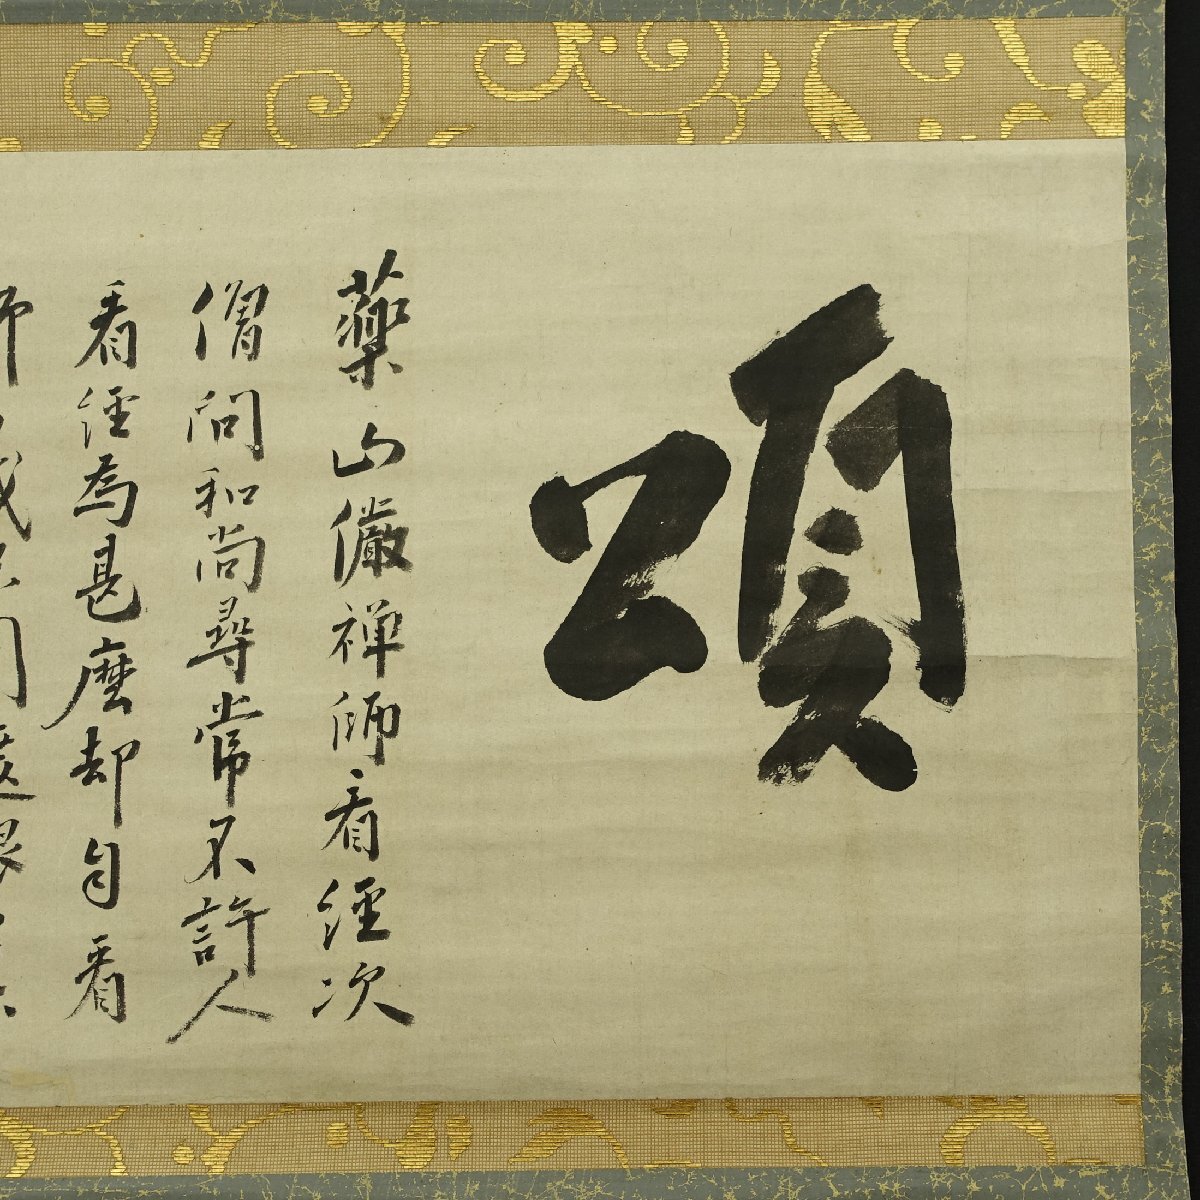 頌
藥山儼禅師看經次
僧問和尚尋常不許人
看經為甚麼却自看
師